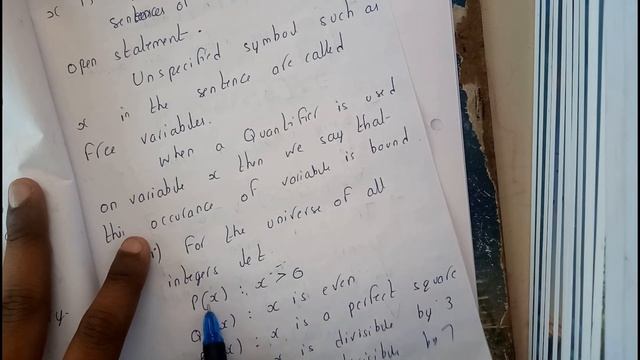 x
sentences of
open statement.
Unspecified symbol such as
x in the sentence are called
free variables.
When a Quantifier is used
on variable x then we say that
this occurance of variable is bound.
For the universe of all
integers let
P(x) : x > 0
Q(x) : x is even
(x) : x is a perfect square
(x) : x is divisible by 3
divisible by 7